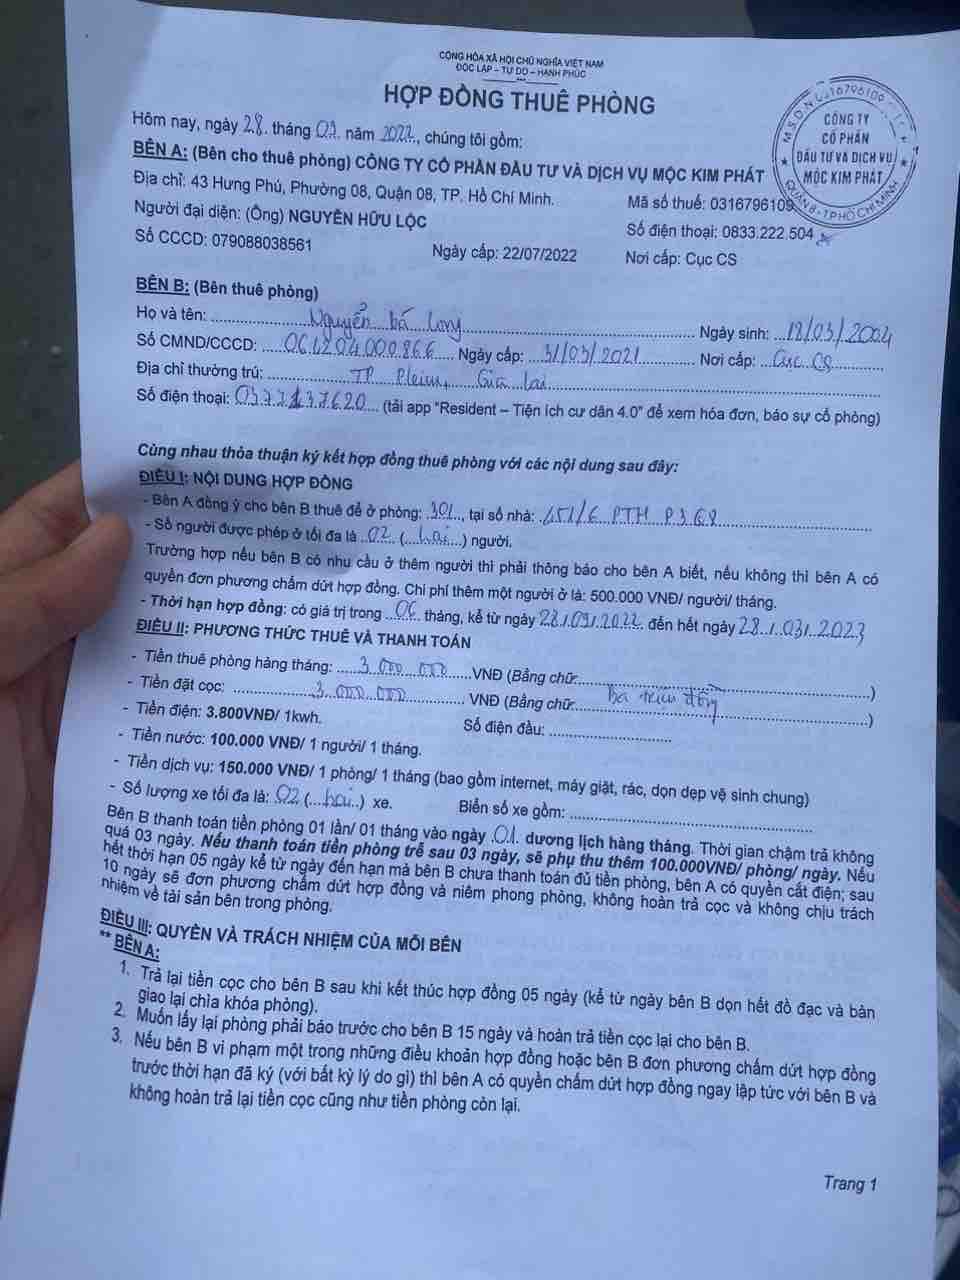 CỘNG HÒA XÃ HỘI CHỦ NGHĨA VIỆT NAM
ĐỘC LẬP – TỰ DO – HẠNH PHÚC
HỢP ĐỒNG THUÊ PHÒNG
M.S.D.N: 0316796109
CÔNG TY
CỔ PHẦN
ĐẦU TƯ VÀ DỊCH VỤ
MỘC KIM PHÁT
QUẬN 8 - TP HỒ CHÍ MINH
Hôm nay, ngày 28 tháng 09 năm 2022, chúng tôi gồm:
BÊN A: (Bên cho thuê phòng) CÔNG TY CỔ PHẦN ĐẦU TƯ VÀ DỊCH VỤ MỘC KIM PHÁT
Địa chỉ: 43 Hưng Phú, Phường 08, Quận 08, TP. Hồ Chí Minh. Mã số thuế: 0316796109
Người đại diện: (Ông) NGUYỄN HỮU LỘC Số điện thoại: 0833.222.504
Số CCCD: 079088038561 Ngày cấp: 22/07/2022 Nơi cấp: Cục CS
BÊN B: (Bên thuê phòng)
Họ và tên: Nguyễn bá Long Ngày sinh: 18/03/2004
Số CMND/CCCD: 061204000866 Ngày cấp: 31/03/2021 Nơi cấp: Cục CS
Địa chỉ thường trú: TP. Pleiku, Gia Lai
Số điện thoại: (tải app "Resident – Tiện ích cư dân 4.0" để xem hóa đơn, báo sự cố phòng)
Cùng nhau thỏa thuận ký kết hợp đồng thuê phòng với các nội dung sau đây:
ĐIỀU I: NỘI DUNG HỢP ĐỒNG
- Bên A đồng ý cho bên B thuê để ở phòng: 301, tại số nhà: PTH P3 Q8
- Số người được phép ở tối đa là 02 (hai) người.
Trường hợp nếu bên B có nhu cầu ở thêm người thì phải thông báo cho bên A biết, nếu không thì bên A có
quyền đơn phương chấm dứt hợp đồng. Chi phí thêm một người ở là: 500.000 VNĐ/ người/ tháng.
- Thời hạn hợp đồng: có giá trị trong 06 tháng, kể từ ngày 28/09/2022 đến hết ngày 28/03/2023
ĐIỀU II: PHƯƠNG THỨC THUÊ VÀ THANH TOÁN
- Tiền thuê phòng hàng tháng: 3 000 000 VNĐ (Bằng chữ: )
- Tiền đặt cọc: 3 000 000 VNĐ (Bằng chữ: ba triệu đồng )
- Tiền điện: 3.800VNĐ/ 1kwh. Số điện đầu:
- Tiền nước: 100.000 VNĐ/ 1 người/ 1 tháng.
- Tiền dịch vụ: 150.000 VNĐ/ 1 phòng/ 1 tháng (bao gồm internet, máy giặt, rác, dọn dẹp vệ sinh chung)
- Số lượng xe tối đa là: 02 (hai) xe. Biển số xe gồm:
Bên B thanh toán tiền phòng 01 lần/ 01 tháng vào ngày 01 dương lịch hàng tháng. Thời gian chậm trả không
quá 03 ngày. Nếu thanh toán tiền phòng trễ sau 03 ngày, sẽ phụ thu thêm 100.000VNĐ/ phòng/ ngày. Nếu
hết thời hạn 05 ngày kể từ ngày đến hạn mà bên B chưa thanh toán đủ tiền phòng, bên A có quyền cắt điện; sau
10 ngày sẽ đơn phương chấm dứt hợp đồng và niêm phong phòng, không hoàn trả cọc và không chịu trách
nhiệm về tài sản bên trong phòng.
ĐIỀU III: QUYỀN VÀ TRÁCH NHIỆM CỦA MỖI BÊN
** BÊN A:
1. Trả lại tiền cọc cho bên B sau khi kết thúc hợp đồng 05 ngày (kể từ ngày bên B dọn hết đồ đạc và bàn
giao lại chìa khóa phòng).
2. Muốn lấy lại phòng phải báo trước cho bên B 15 ngày và hoàn trả tiền cọc lại cho bên B.
3. Nếu bên B vi phạm một trong những điều khoản hợp đồng hoặc bên B đơn phương chấm dứt hợp đồng
trước thời hạn đã ký (với bất kỳ lý do gì) thì bên A có quyền chấm dứt hợp đồng ngay lập tức với bên B và
không hoàn trả lại tiền cọc cũng như tiền phòng còn lại.
Trang 1